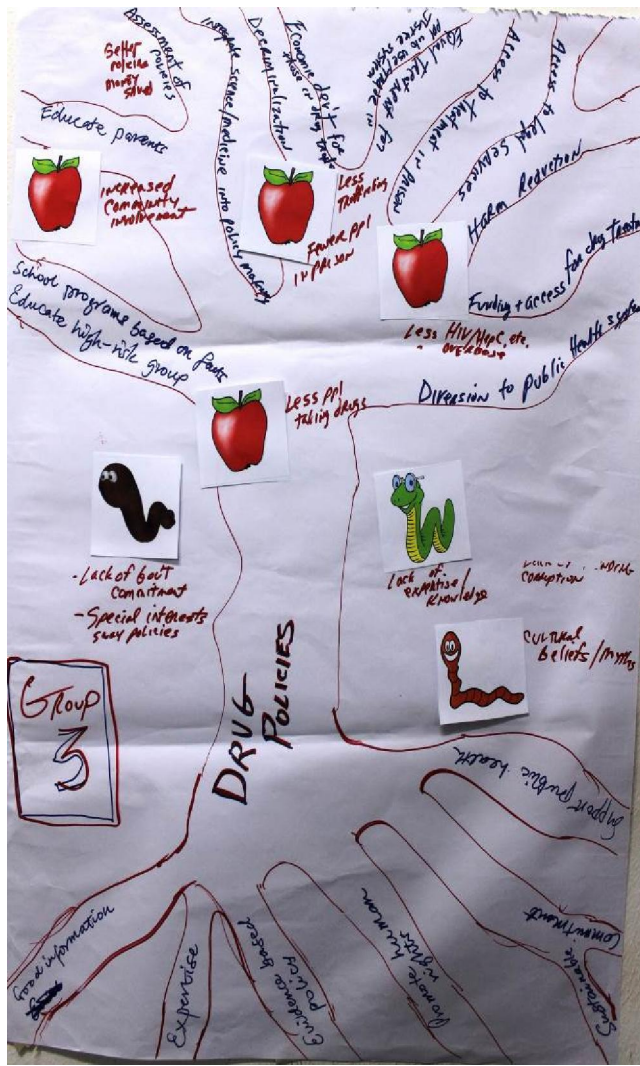 Assessment of
policies
Better
policies
money
saved
Educate parents
Increased
Community
involvement
School programs based on facts
Educate high-risk group
Integrate science/medicine into policy making
Decriminalization
Economic dev't for
those in drug trade
Less
Trafficking
Fewer ppl
in prison
Equal treatment for
justice system
Access to treatment in prison
Access to legal services
Harm Reduction
Funding + access for drug
Less HIV/HepC, etc.
overdose
Diversion to Public Health system
Less ppl
taking drugs
- Lack of Gov't
commitment
- Special interests
sway policies
Lack of
expertise/
Knowledge
corruption
Cultural
Beliefs/myths
Group
3
Drug
Policies
Support public health
Sustainable
Commitment
Promote human
rights
Evidence based
Expertise
Good information